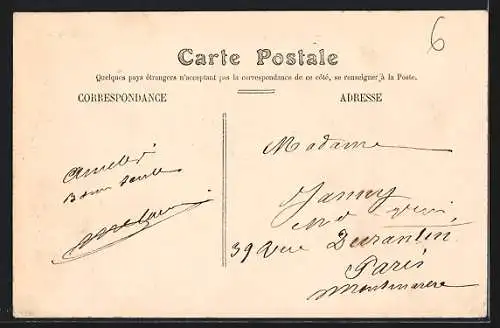 6
Carte Postale
Quelques pays étrangers n'acceptant pas la correspondance de ce côté, se renseigner à la Poste.
CORRESPONDANCE
ADRESSE
Amitiés
Bonne santé
Madame
Janny
39 Rue Durantin
Paris
Montmartre